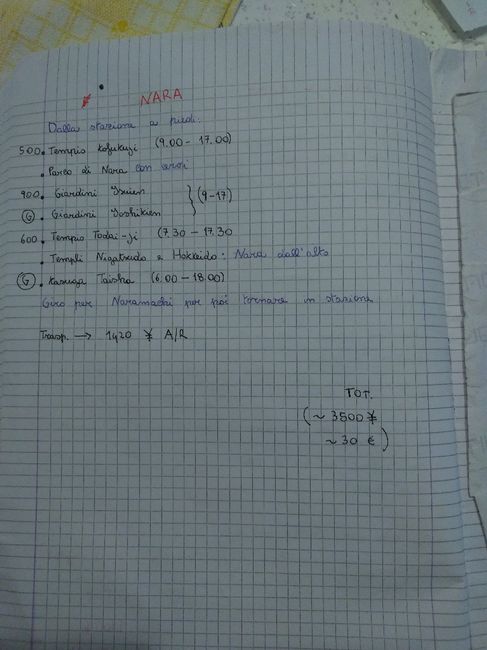 NARA
Dalla stazione a piedi:
500. Tempio Kofukuji (9.00 - 17.00)
. Parco di Nara con cervi
900. Giardini Isuien } (9-17)
(G). Giardini Yoshikien
600. Tempio Todai-ji (7.30 - 17.30
. Templi Nigatsudo e Hokkeido: Nara dall'alto
(G). Kasuga Taisha (6.00 - 18.00)
Giro per Naramachi per poi tornare in stazione
Trasp. → 1420 ¥ A/R
TOT.
(~ 3500 ¥
~ 30 €)